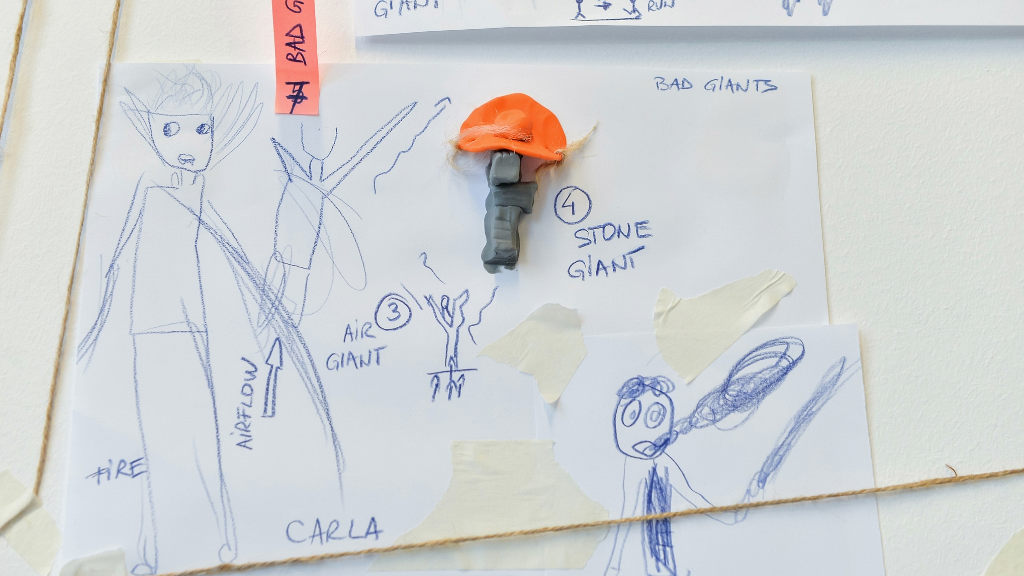 GIANT
RUN
BAD G
BAD GIANTS
4
STONE
GIANT
3
AIR
GIANT
AIRFLOW
FIRE
CARLA